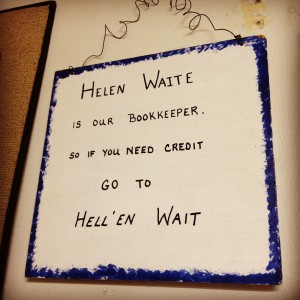 HELEN WAITE
IS OUR BOOKKEEPER.
SO IF YOU NEED CREDIT
GO TO
HELL'EN WAIT